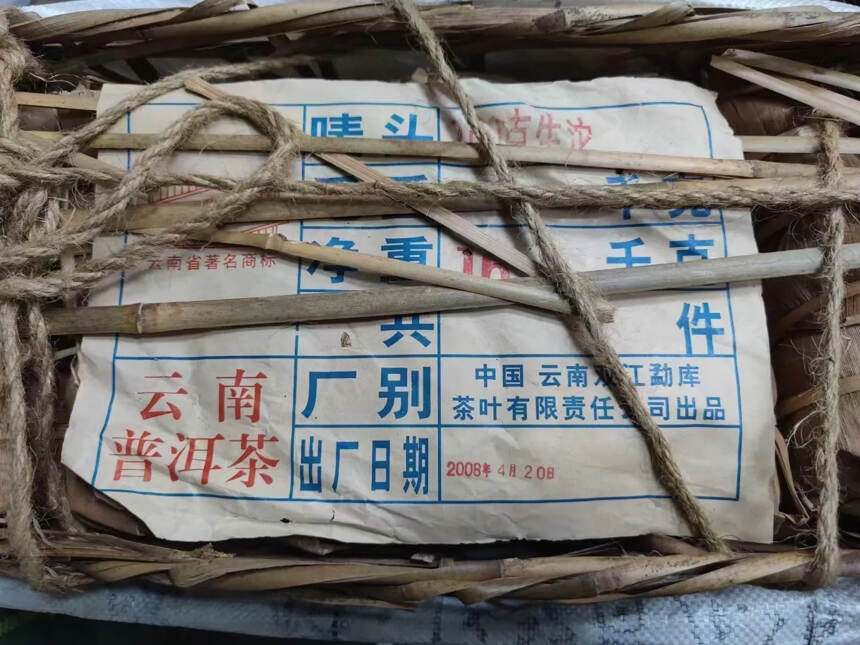 唛头 古生沱
云南省著名商标
净重 千克
件
厂别 中国 云南双江勐库
茶叶有限责任公司出品
云南
普洱茶
出厂日期 2008年4月20日